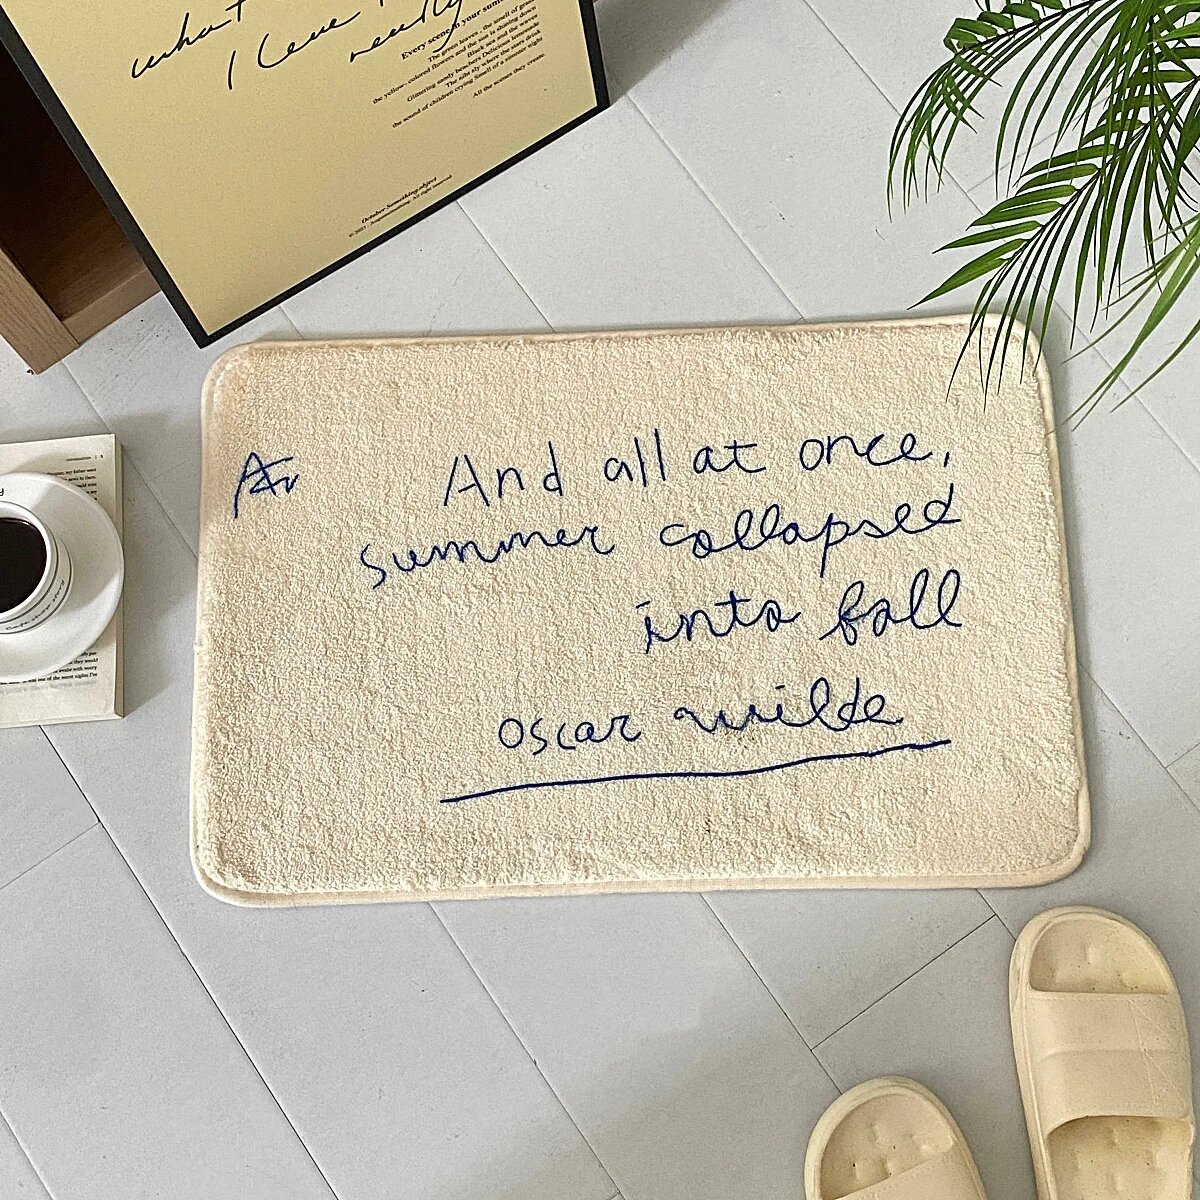 what
I love
really
Every scene in your summer
The green leaves, the smell of grass
the yellow-colored flowers and the sun is shining down
Black wet and the waves
Glittering sandy beaches Delicious lemonade
the sound of children crying Smell of a summer night
All the scenes they create.
October.Something.object
© 2021
All right reserved
Ar
And all at once,
summer collapsed
into fall
oscar wilde